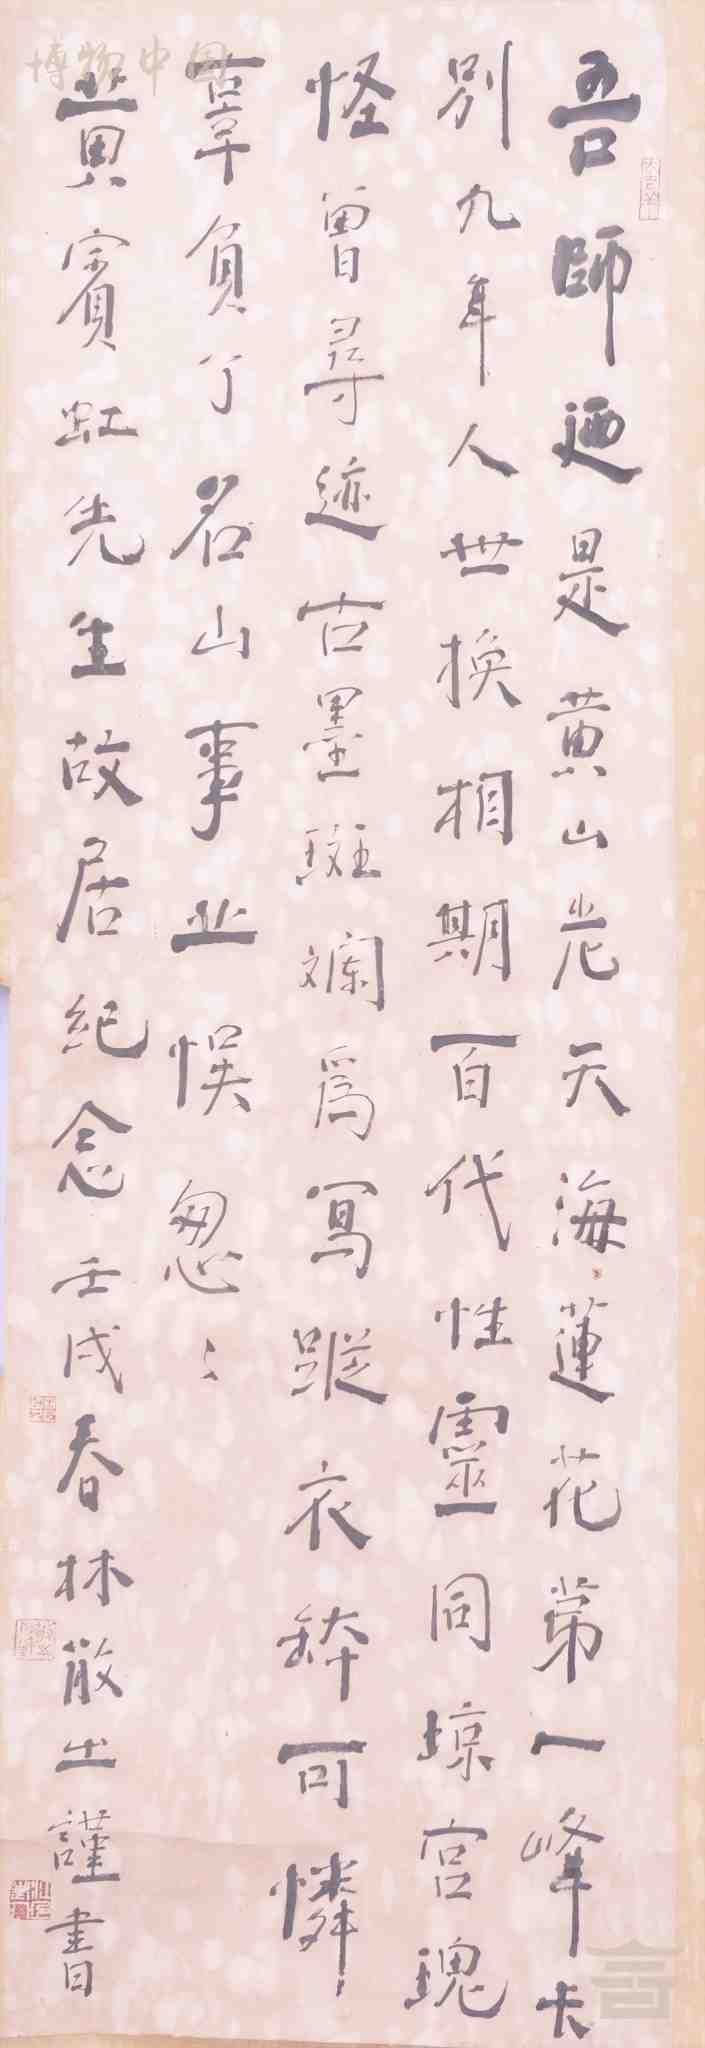 吾師廼是黄山老天海蓮花第一峰卡
別九年人世換相期百代性靈同㙇宫瑰
怪曾尋迹古墨斑斕為寫蹤衣鉢可憐
辜負了名山事业悮怱〻
黄賓虹先生故居紀念壬戌春林散之謹書
博物中国